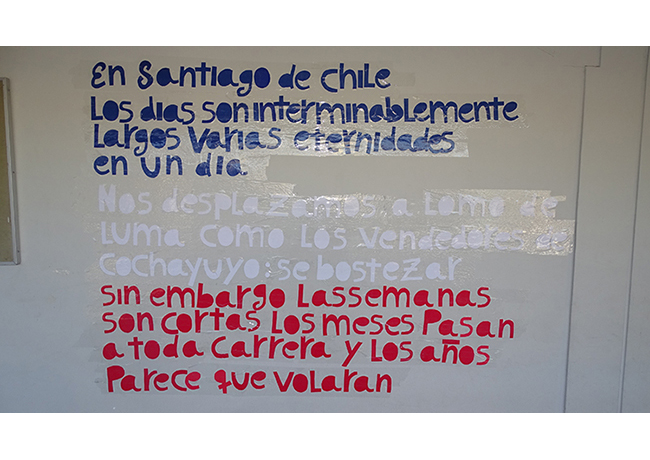 En Santiago de Chile
Los dias son interminablemente
Largos varias eternidades
en un dia.
Nos desplazamos a Lomo de
Luma como Los vendedores de
cochayuyo: se bostezar
sin embargo Lassemanas
son cortas Los meses Pasan
a toda carrera y Los años
Parece que volaran